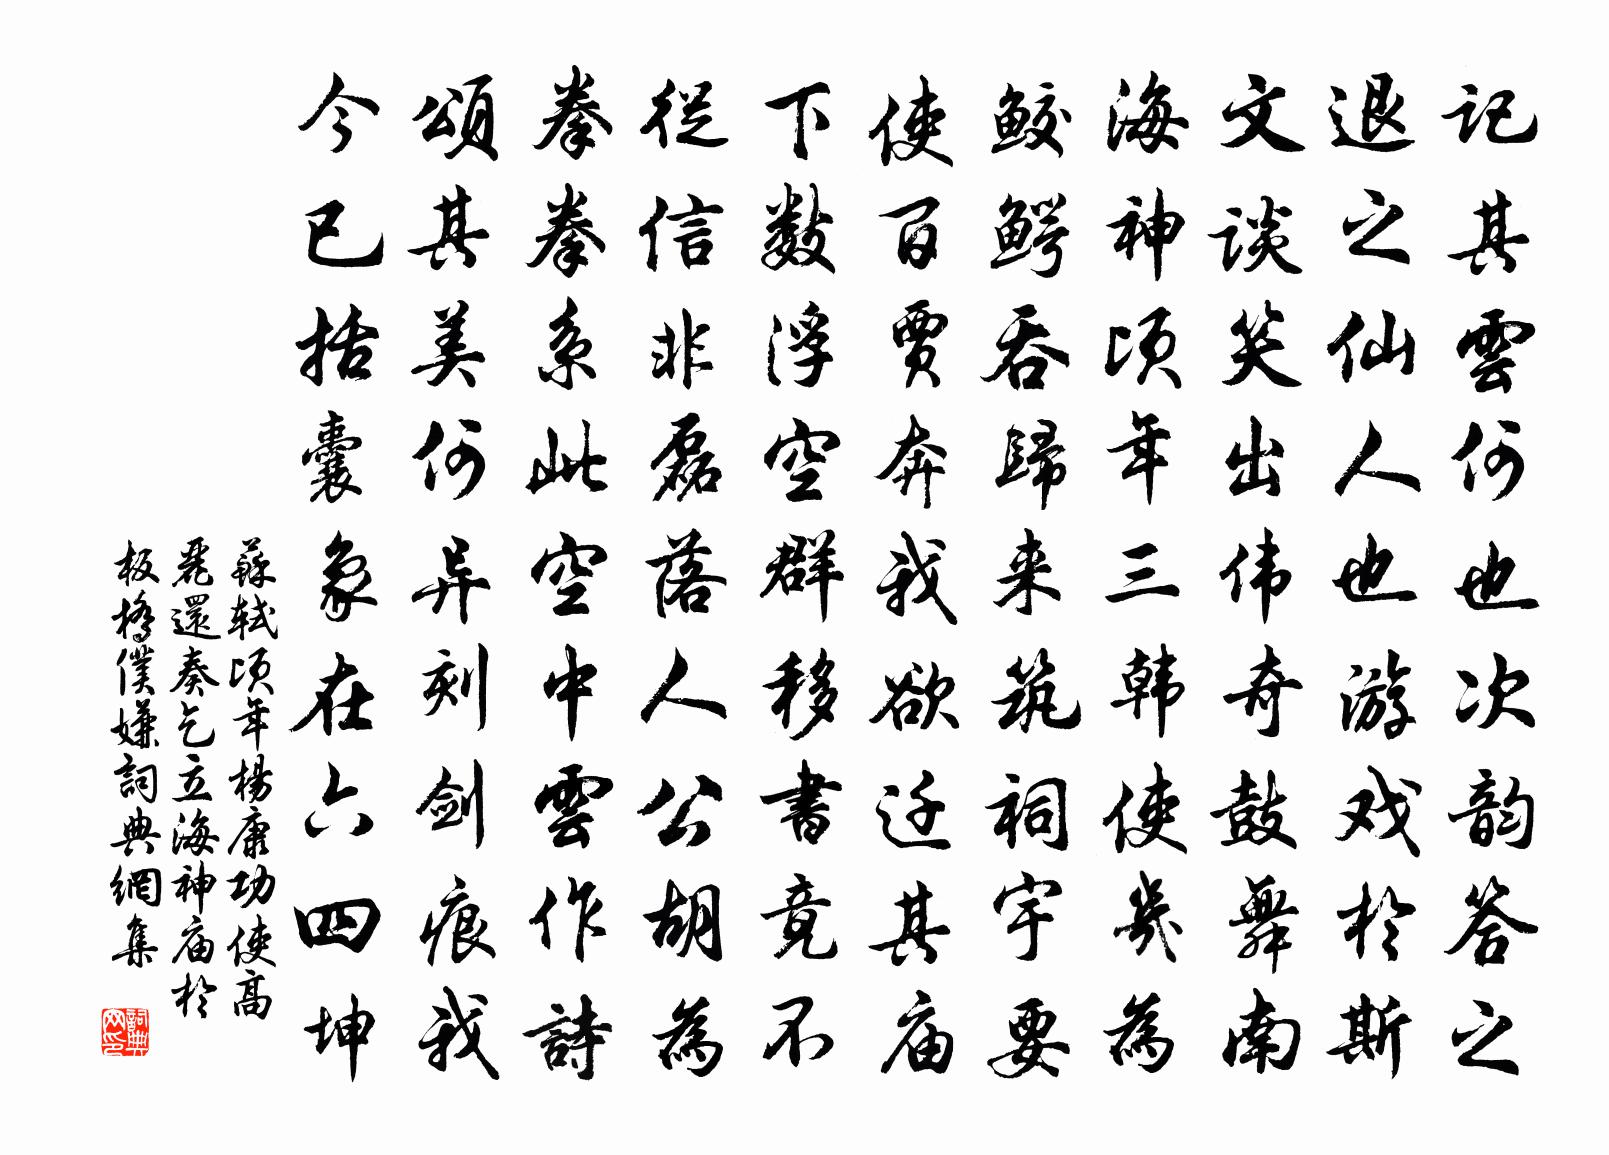 记其雲何也次韵答之
退之仙人也游戏於斯
文谈笑出伟奇鼓舞南
海神顷年三韩使幾為
鲛鳄吞歸来筑祠宇要
使百贾奔我欲迁其庙
下数浮空群移書竟不
從信非磊落人公胡為
拳拳系此空中雲作詩
頌其美何异刻剑痕我
今已括囊象在六四坤
蘇軾顷年楊康功使高
麗還奏乞立海神庙於
板橋僕嫌詞典網集